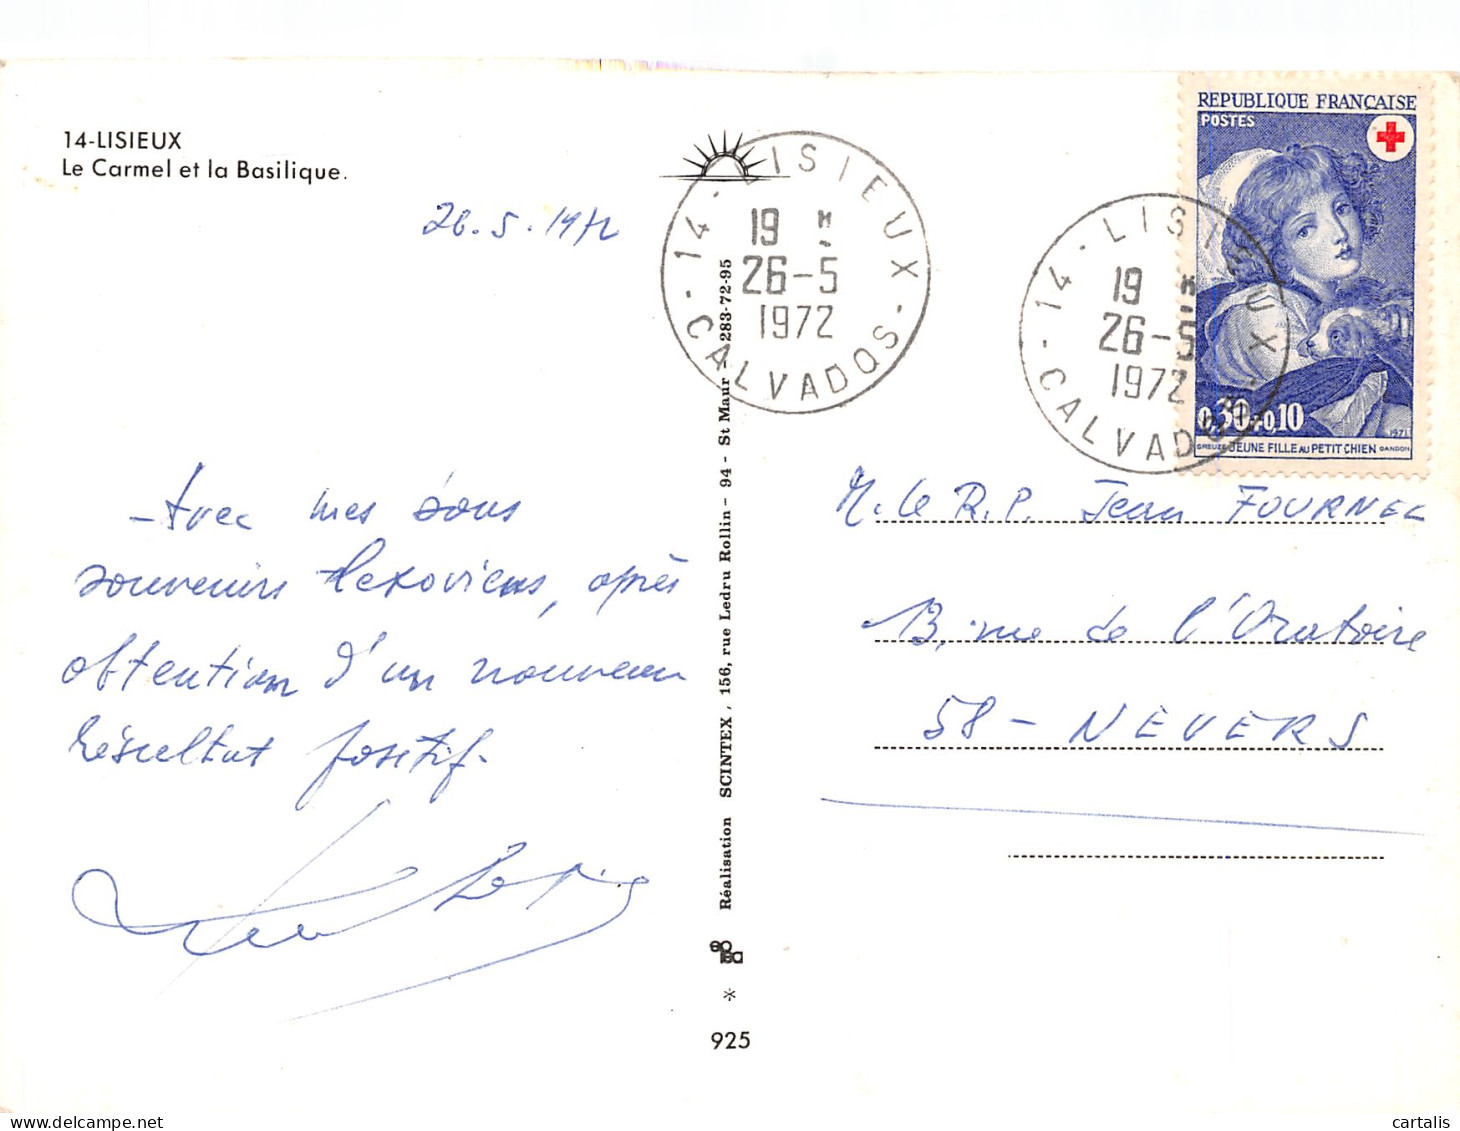 14-LISIEUX
Le Carmel et la Basilique.
26.5.1972
- Avec mes bons
souvenirs lexoviens, après
obtention d'un nouveau
résultat positif.
14 - LISIEUX - CALVADOS
19 H
26-5
1972
14 - LISIEUX - CALVADOS
19 H
26-5
1972
REPUBLIQUE FRANÇAISE
POSTES
0,30+0,10
1971
GREUZE JEUNE FILLE AU PETIT CHIEN GANDON
M. le R.P. Jean FOURNEE
13, rue de l'Oratoire
58 - NEVERS
Réalisation SCINTEX, 156, rue Ledru Rollin - 94 - St Maur - 283-72-95
*
925
cartalis